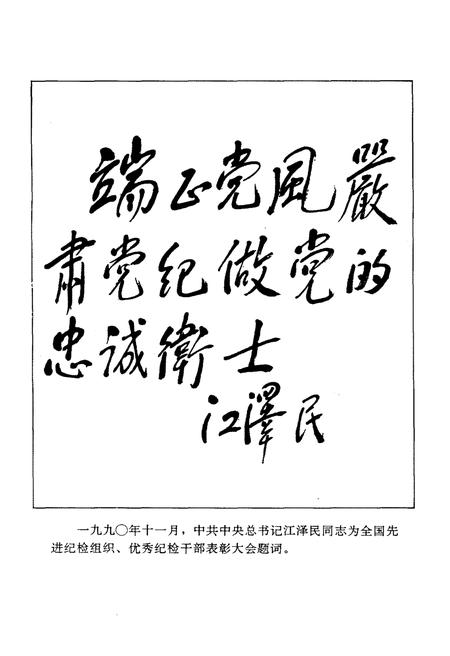 端正党风嚴
肃党纪做党的
忠诚衛士
江澤民
一九九〇年十一月，中共中央总书记江泽民同志为全国先
进纪检组织、优秀纪检干部表彰大会题词。